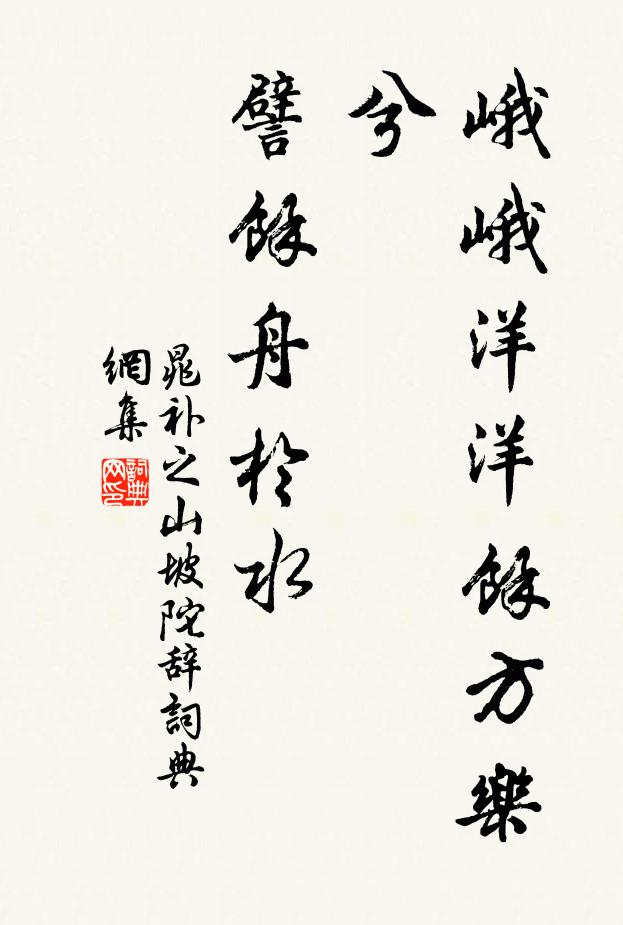 峨峨洋洋餘方樂
兮
譬餘舟於水
晁补之山坡陀辞詞典
網集
詞典
网印